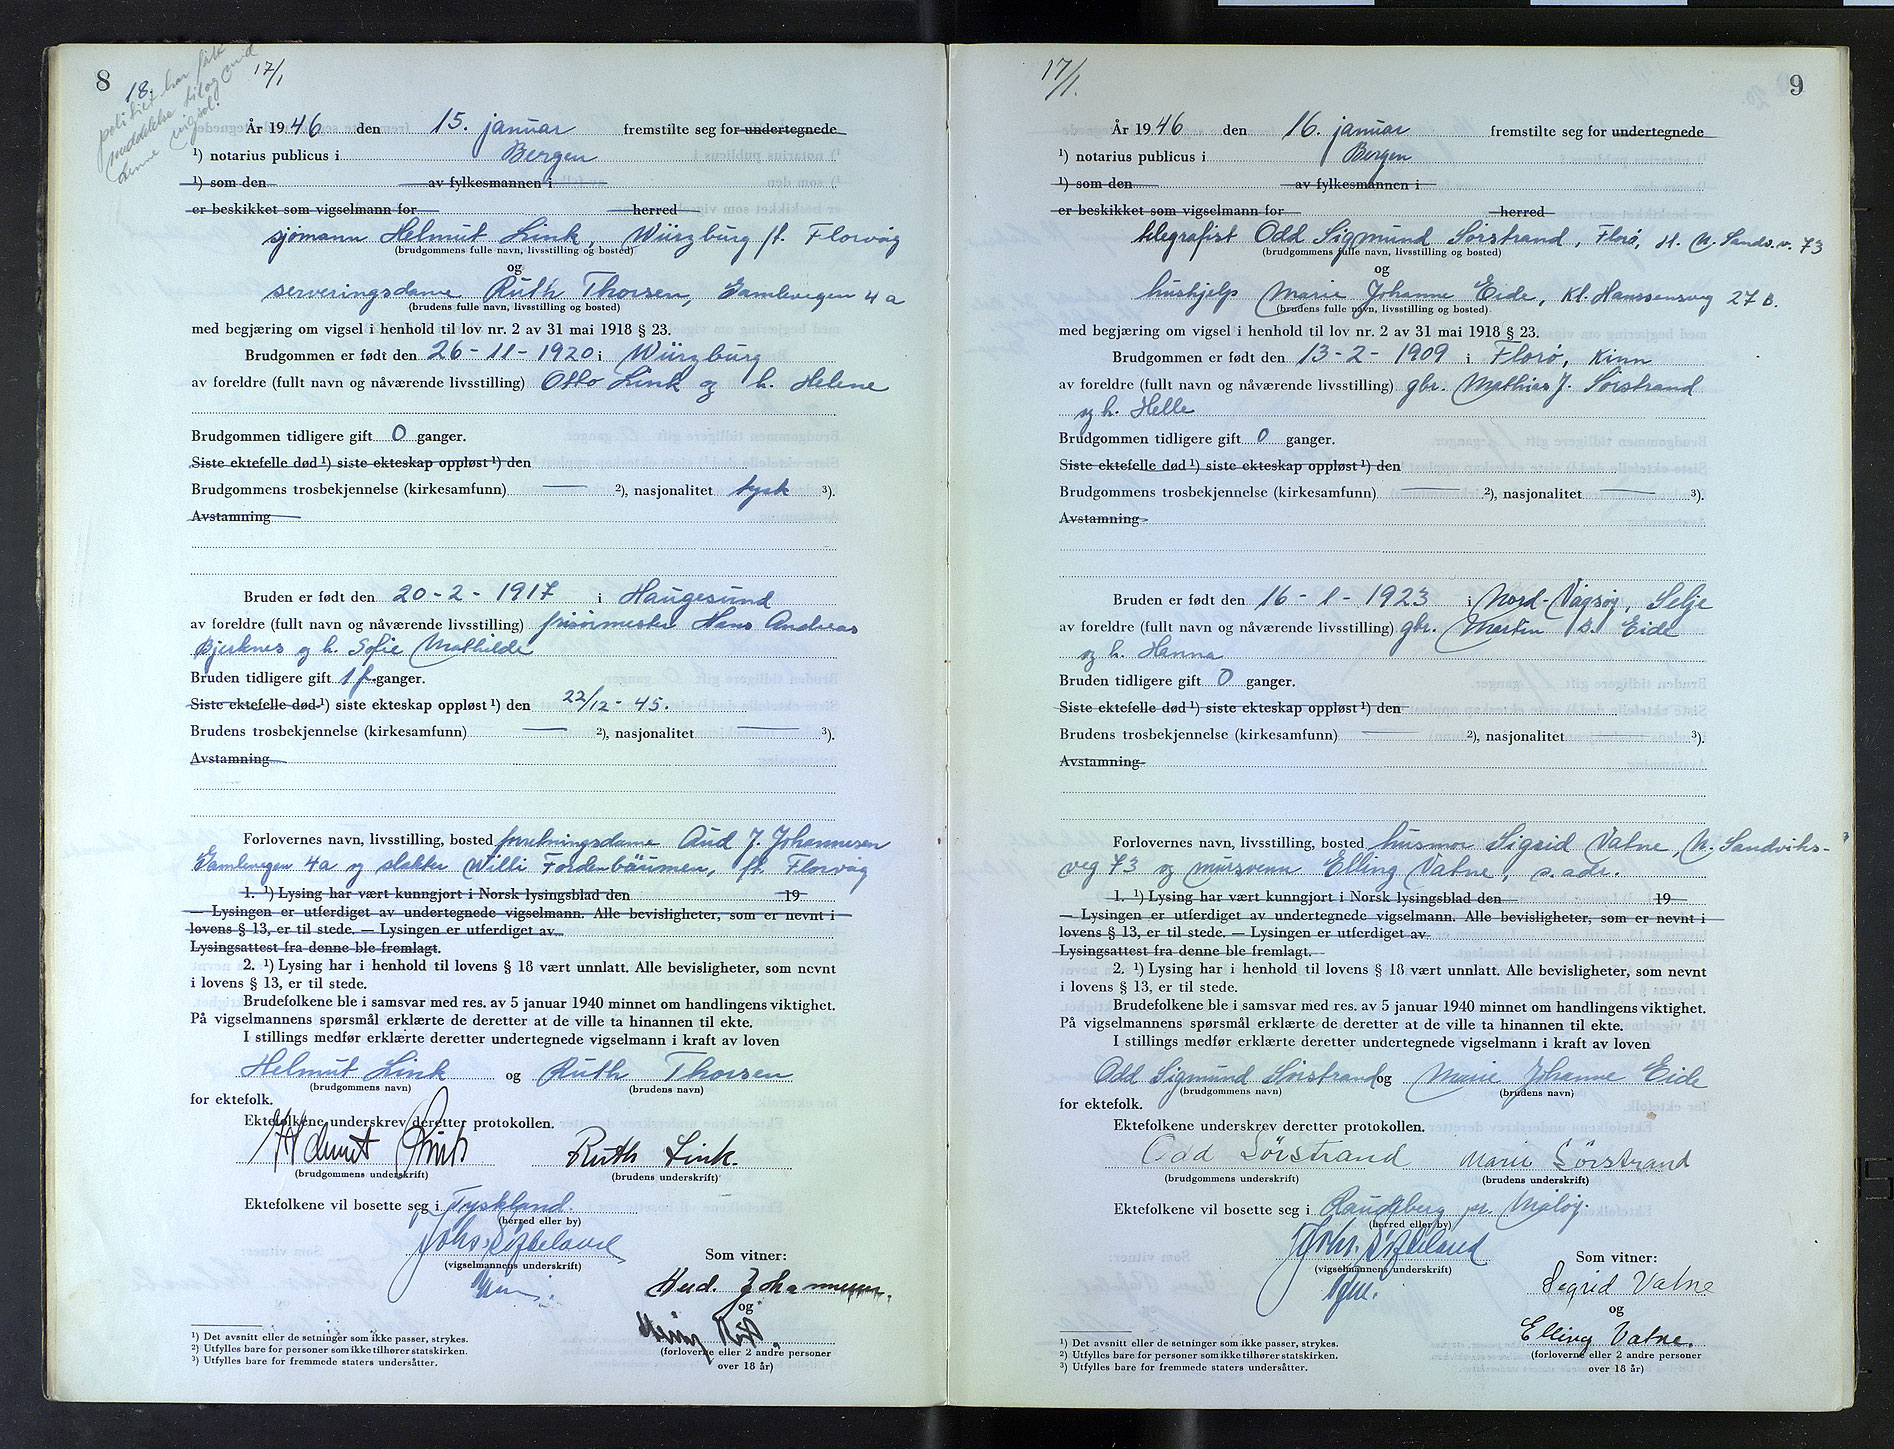 8
18.
17/1
politiet har fått
meddelelse
denne vigsel.
År 1946 den 15. januar fremstilte seg for undertegnede
¹) notarius publicus i Bergen
¹) som den av fylkesmannen i
er beskikket som vigselmann for herred
sjømann Helmut Link, Würzburg p.t. Florvåg
(brudgommens fulle navn, livsstilling og bosted)
og
serveringsdame Ruth Thorsen, Gamlevegen 4a
(brudens fulle navn, livsstilling og bosted)
med begjæring om vigsel i henhold til lov nr. 2 av 31 mai 1918 § 23.
Brudgommen er født den 26-11-1920 i Würzburg
av foreldre (fullt navn og nåværende livsstilling) Otto Link og h. Helene
Brudgommen tidligere gift 0 ganger.
Siste ektefelle død ¹) siste ekteskap oppløst ¹) den
Brudgommens trosbekjennelse (kirkesamfunn) — ²), nasjonalitet tysk ³).
Avstamning
Bruden er født den 20-2-1917 i Haugesund
av foreldre (fullt navn og nåværende livsstilling) frisørmester Hans Andreas
Bjerknes og h. Sofie Mathilde
Bruden tidligere gift 1 g. ganger.
Siste ektefelle død ¹) siste ekteskap oppløst ¹) den 22/12-45.
Brudens trosbekjennelse (kirkesamfunn) — ²), nasjonalitet — ³).
Avstamning
Forlovernes navn, livsstilling, bosted forretningsdame Aud J. Johannesen
Gamlevegen 4a og slakter Willi Fordenbäumen, p.t. Florvåg
1. ¹) Lysing har vært kunngjort i Norsk lysingsblad den 19
— Lysingen er utferdiget av undertegnede vigselmann. Alle bevisligheter, som er nevnt i
lovens § 13, er til stede. — Lysingen er utferdiget av
Lysingsattest fra denne ble fremlagt.
2. ¹) Lysing har i henhold til lovens § 18 vært unnlatt. Alle bevisligheter, som nevnt
i lovens § 13, er til stede.
Brudefolkene ble i samsvar med res. av 5 januar 1940 minnet om handlingens viktighet.
På vigselmannens spørsmål erklærte de deretter at de ville ta hinannen til ekte.
I stillings medfør erklærte deretter undertegnede vigselmann i kraft av loven
Helmut Link og Ruth Thorsen
(brudgommens navn) (brudens navn)
for ektefolk.
Ektefolkene underskrev deretter protokollen.
Helmut Link Ruth Link.
(brudgommens underskrift) (brudens underskrift)
Ektefolkene vil bosette seg i Tyskland.
(herred eller by)
(vigselmannens underskrift)
Som vitner:
Aud. Johannesen.
og
(forloverne eller 2 andre personer
over 18 år)
¹) Det avsnitt eller de setninger som ikke passer, strykes.
²) Utfylles bare for personer som ikke tilhører statskirken.
³) Utfylles bare for fremmede staters undersåtter.
17/1.
9
År 1946 den 16. januar fremstilte seg for undertegnede
¹) notarius publicus i Bergen
¹) som den av fylkesmannen i
er beskikket som vigselmann for herred
telegrafist Odd Sigmund Sørstrand, Florø, N. Sandv.v. 73
(brudgommens fulle navn, livsstilling og bosted)
og
hushjelp Marie Johanne Eide, Kl. Hanssensveg 27 B.
(brudens fulle navn, livsstilling og bosted)
med begjæring om vigsel i henhold til lov nr. 2 av 31 mai 1918 § 23.
Brudgommen er født den 13-2-1909 i Florø, Kinn
av foreldre (fullt navn og nåværende livsstilling) gbr. Mathias J. Sørstrand
og h. Helle
Brudgommen tidligere gift 0 ganger.
Siste ektefelle død ¹) siste ekteskap oppløst ¹) den
Brudgommens trosbekjennelse (kirkesamfunn) — ²), nasjonalitet — ³).
Avstamning
Bruden er født den 16-1-1923 i Nord-Vågsøy, Selje
av foreldre (fullt navn og nåværende livsstilling) gbr. Martin B. Eide
og h. Hanna
Bruden tidligere gift 0 ganger.
Siste ektefelle død ¹) siste ekteskap oppløst ¹) den
Brudens trosbekjennelse (kirkesamfunn) — ²), nasjonalitet — ³).
Avstamning
Forlovernes navn, livsstilling, bosted husmor Sigrid Vatne, N. Sandviks-
veg 73 og mursvenn Elling Vatne, s. adr.
1. ¹) Lysing har vært kunngjort i Norsk lysingsblad den 19
— Lysingen er utferdiget av undertegnede vigselmann. Alle bevisligheter, som er nevnt i
lovens § 13, er til stede. — Lysingen er utferdiget av
Lysingsattest fra denne ble fremlagt.
2. ¹) Lysing har i henhold til lovens § 18 vært unnlatt. Alle bevisligheter, som nevnt
i lovens § 13, er til stede.
Brudefolkene ble i samsvar med res. av 5 januar 1940 minnet om handlingens viktighet.
På vigselmannens spørsmål erklærte de deretter at de ville ta hinannen til ekte.
I stillings medfør erklærte deretter undertegnede vigselmann i kraft av loven
Odd Sigmund Sørstrand og Marie Johanne Eide
(brudgommens navn) (brudens navn)
for ektefolk.
Ektefolkene underskrev deretter protokollen.
Odd Sörstrand Marie Sörstrand
(brudgommens underskrift) (brudens underskrift)
Ektefolkene vil bosette seg i Raudeberg pr. Måløy.
(herred eller by)
(vigselmannens underskrift)
Som vitner:
Sigrid Vatne
og
Elling Vatne.
(forloverne eller 2 andre personer
over 18 år)
¹) Det avsnitt eller de setninger som ikke passer, strykes.
²) Utfylles bare for personer som ikke tilhører statskirken.
³) Utfylles bare for fremmede staters undersåtter.